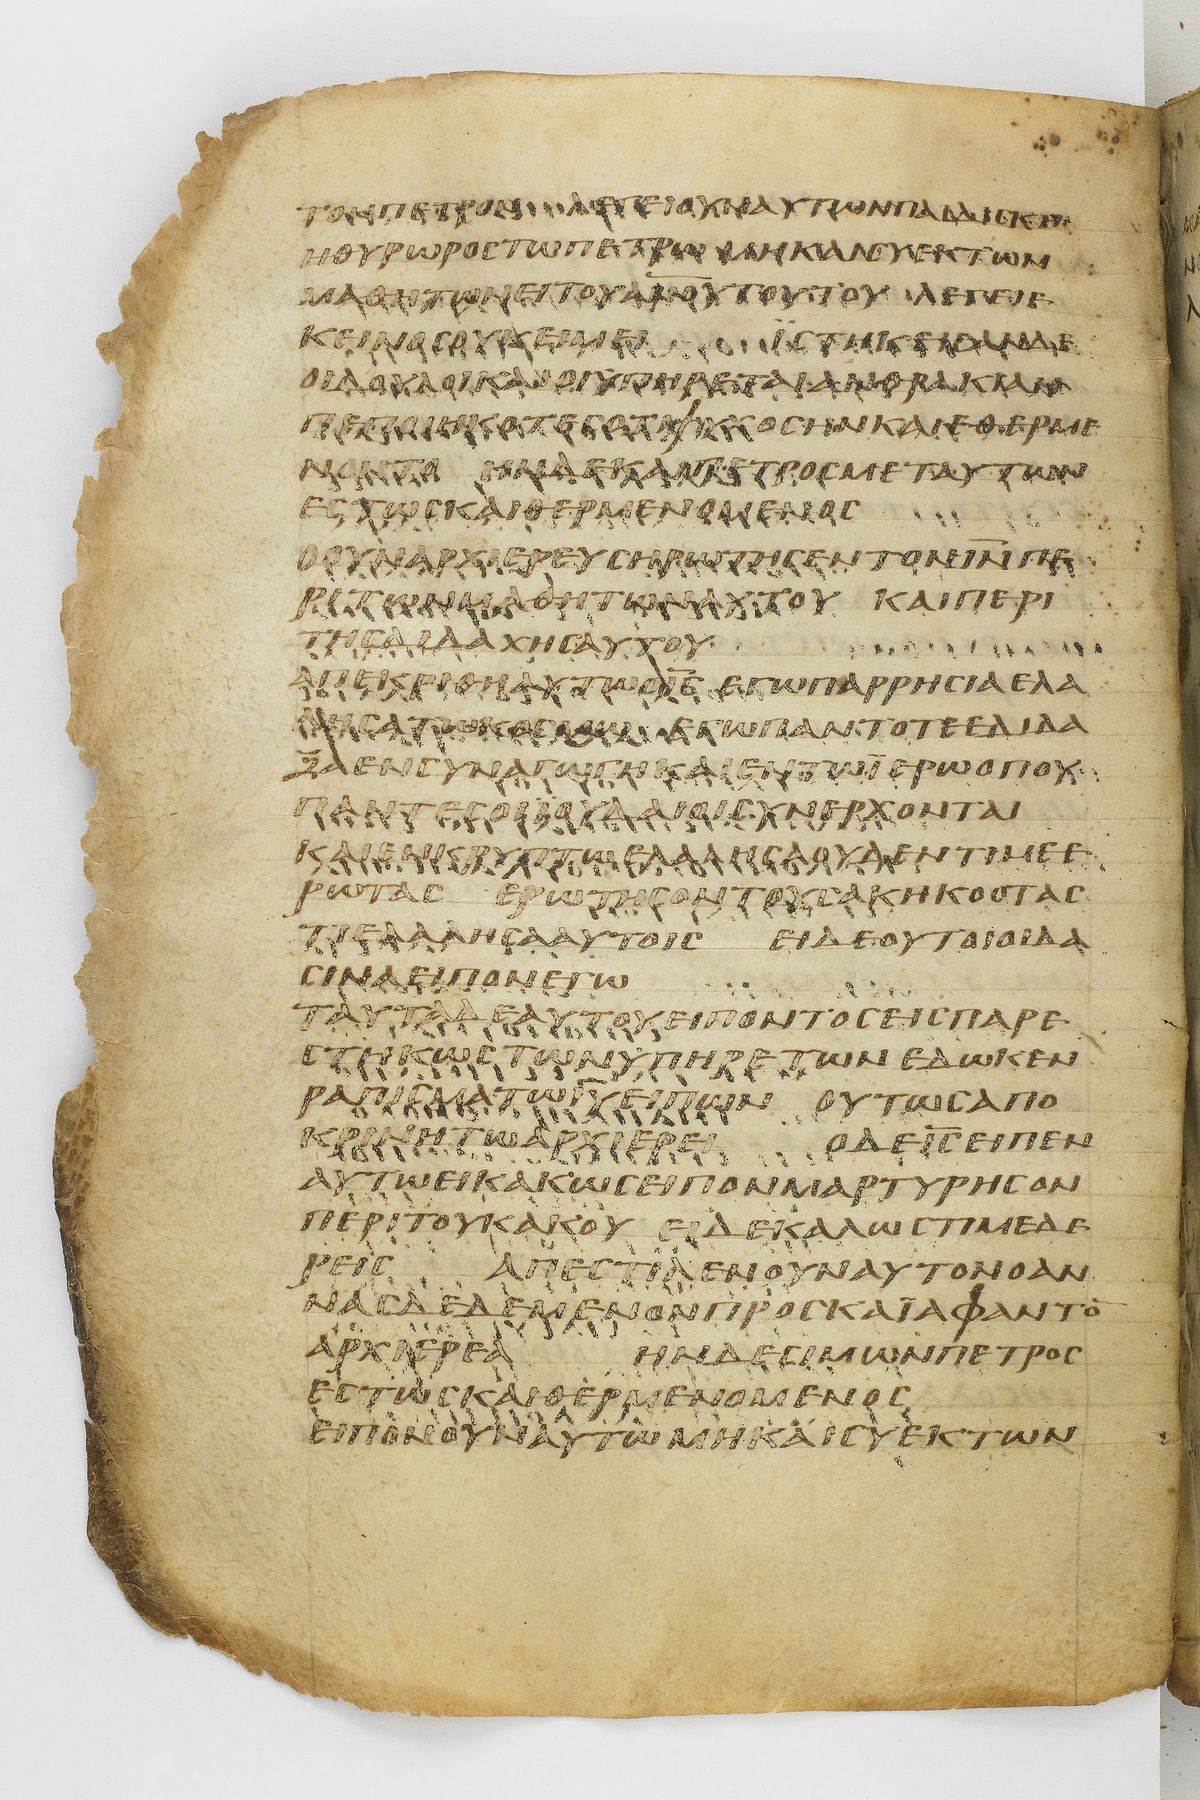 ΤΟΝΠΕΤΡΟΝ ΛΕΓΕΙΟΥΝΑΥΤΩΝΠΑΙΔΙCΚΗ
ΗΘΥΡΩΡΟCΤΩΠΕΤΡΩ ΜΗΚΑΙCΥΕΚΤΩΝ
ΜΑΘΗΤΩΝΕΙΤΟΥΑΝΟΥΤΟΥΤΟΥ ΛΕΓΕΙΕ
ΚΕΙΝΟCΟΥΚΕΙΜΕΙ ΪCΤΗΚΕΙCΑΝΔΕ
ΟΙΔΟΥΛΟΙΚΑΙΟΙΫΠΗΡΕΤΑΙΑΝΘΡΑΚΙΑΝ
ΠΕΠΟΙΗΚΟΤΕCΟΤΙΨΥΧΟCΗΝΚΑΙΕΘΕΡΜΕ
ΝΟΝΤΟ ΗΝΔΕΚΑΙΠΕΤΡΟCΜΕΤΑΥΤΩΝ
ΕCΤΩCΚΑΙΘΕΡΜΕΝΟΜΕΝΟC
ΟΟΥΝΑΡΧΙΕΡΕΥCΗΡΩΤΗCΕΝΤΟΝΙ̅Ν̅ΠΕ
ΡΙΤΩΝΜΑΘΗΤΩΝΑΥΤΟΥ ΚΑΙΠΕΡΙ
ΤΗCΔΙΔΑΧΗCΑΥΤΟΥ
ΑΠΕΚΡΙΘΗΑΥΤΩΟΙ̅C̅ ΕΓΩΠΑΡΡΗCΙΑΕΛΑ
ΛΗCΑΤΩΚΟCΜΩ ΕΓΩΠΑΝΤΟΤΕΕΔΙΔΑ
ΞΑΕΝCΥΝΑΓΩΓΗΚΑΙΕΝΤΩΪΕΡΩΟΠΟΥ
ΠΑΝΤΕCΟΙΪΟΥΔΑΙΟΙCΥΝΕΡΧΟΝΤΑΙ
ΚΑΙΕΝΚΡΥΠΤΩΕΛΑΛΗCΑΟΥΔΕΝΤΙΜΕΕ
ΡΩΤΑC ΕΡΩΤΗCΟΝΤΟΥCΑΚΗΚΟΟΤΑC
ΤΙΕΛΑΛΗCΑΑΥΤΟΙC ΕΙΔΕΟΥΤΟΙΟΙΔΑ
CΙΝΑΕΙΠΟΝΕΓΩ
ΤΑΥΤΑΔΕΑΥΤΟΥΕΙΠΟΝΤΟCΕΙCΠΑΡΕ
CΤΗΚΩCΤΩΝΫΠΗΡΕΤΩΝΕΔΩΚΕΝ
ΡΑΠΙCΜΑΤΩΙ̅Υ̅ΕΙΠΩΝ ΟΥΤΩCΑΠΟ
ΚΡΙΝΗΤΩΑΡΧΙΕΡΕΙ ΟΔΕΙ̅C̅ΕΙΠΕΝ
ΑΥΤΩΕΙΚΑΚΩCΕΙΠΟΝΜΑΡΤΥΡΗCΟΝ
ΠΕΡΙΤΟΥΚΑΚΟΥ ΕΙΔΕΚΑΛΩCΤΙΜΕΔΕ
ΡΕΙC ΑΠΕCΤΙΛΕΝΟΥΝΑΥΤΟΝΟΑΝ
ΝΑCΔΕΔΕΜΕΝΟΝΠΡΟCΚΑΪΑΦΑΝΤΟ̅
ΑΡΧΙΕΡΕΑ ΗΝΔΕCΙΜΩΝΠΕΤΡΟC
ΕCΤΩCΚΑΙΘΕΡΜΕΝΟΜΕΝΟC
ΕΙΠΟΝΟΥΝΑΥΤΩΜΗΚΑΙCΥΕΚΤΩΝ